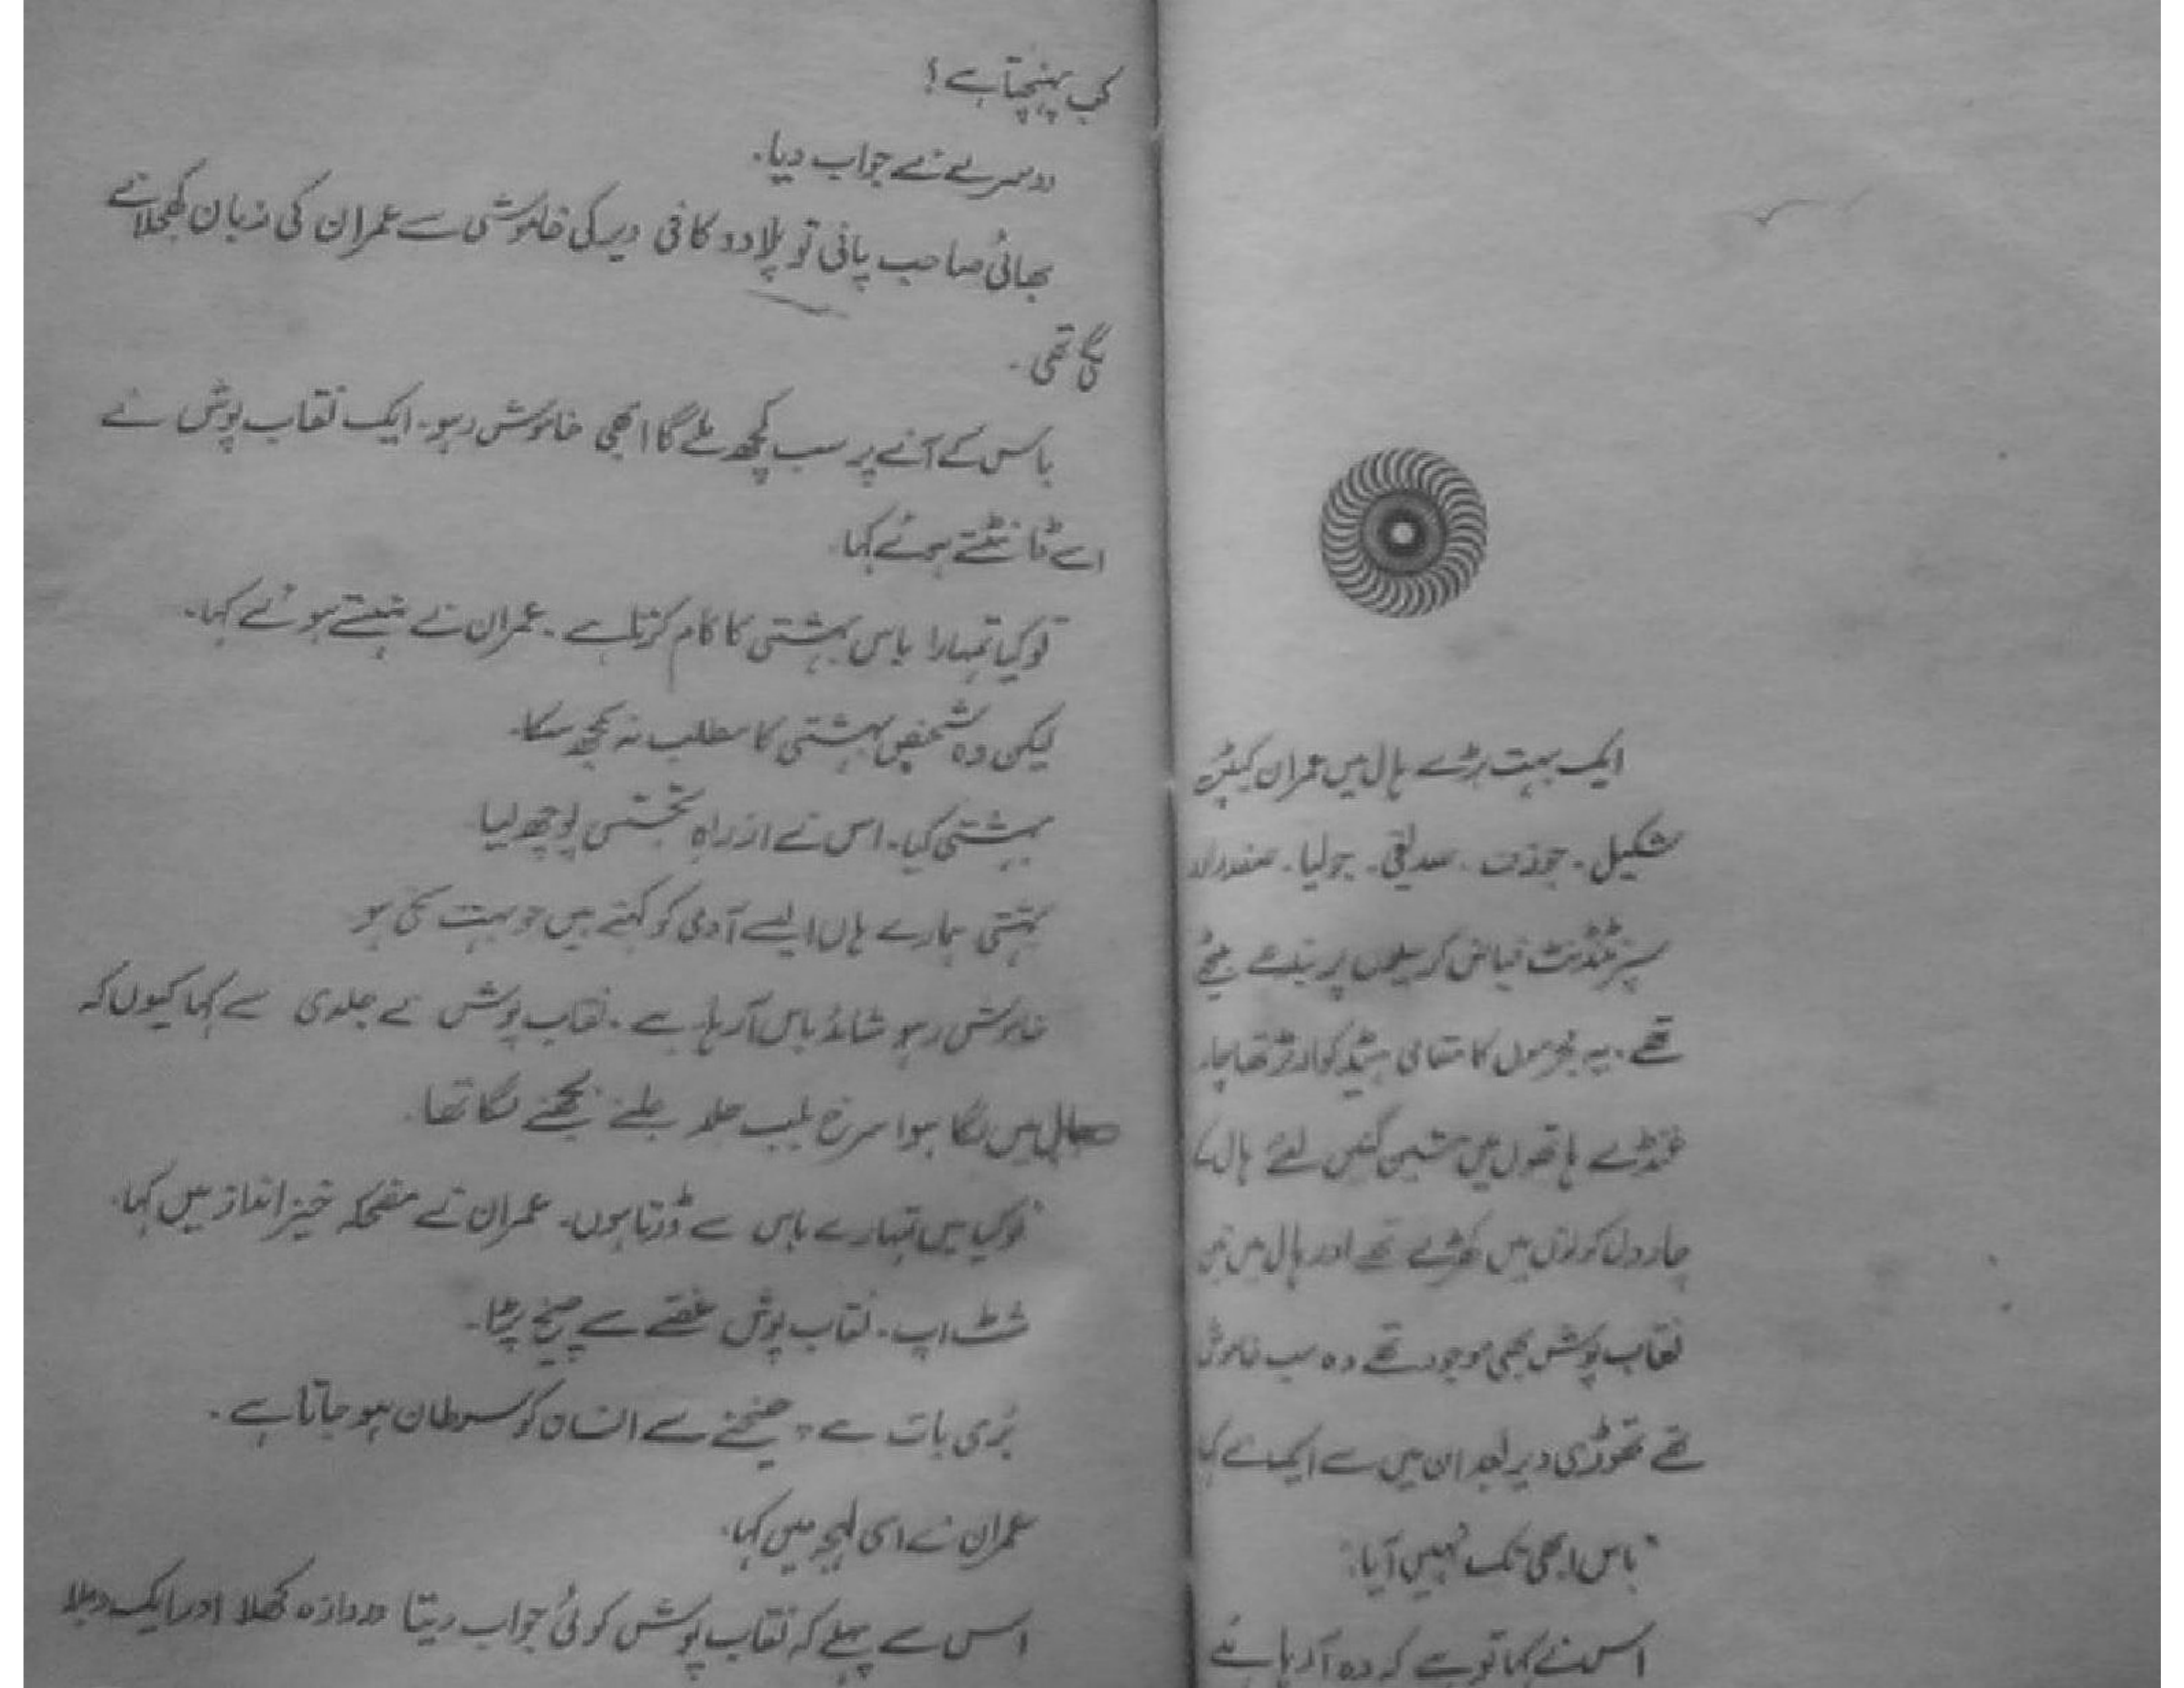 ایک بہت بڑے ہال میں عمران کیپٹن
شکیل ۔ جوزف ۔ صدیقی ۔ جولیا ۔ صفدر اور
سپرنٹنڈنٹ فیاض کرسیوں پر بندھے بیٹھے
تھے ۔ یہ مجرموں کا مقامی ہیڈکوارٹر تھا چار
غنڈے ہاتھوں میں مشین گنیں لئے ہال کے
چاروں کونوں میں کھڑے تھے اور ہال میں تین
نقاب پوش بھی موجود تھے وہ سب خاموش
تھے تھوڑی دیر بعد ان میں سے ایک نے کہا
"باس ابھی تک نہیں آیا۔"
اس نے کہا تو ہے کہ وہ آ رہا ہے
کب پہنچتا ہے !
دوسرے نے جواب دیا۔
بھائی صاحب پانی تو پلا دو کافی دیر کی خاموشی سے عمران کی زبان کھجلانے
لگی تھی ۔
باس کے آنے پر سب کچھ ملے گا ابھی خاموش رہو۔ ایک نقاب پوش نے
اسے ڈانٹتے ہوئے کہا۔
تو کیا تمہارا باس بہشتی کا کام کرتا ہے ۔ عمران نے ہنستے ہوئے کہا۔
لیکن وہ شخص بہشتی کا مطلب نہ سمجھ سکا۔
بہشتی کیا۔ اس نے ازراہ تجسس پوچھ لیا
بہشتی ہمارے ہاں ایسے آدمی کو کہتے ہیں جو بہت سخی ہو
خاموش رہو شائد باس آ رہا ہے ۔ نقاب پوش نے جلدی سے کہا کیوں کہ
ہال میں لگا ہوا سرخ بلب جلد جلنے بجھنے لگا تھا۔
"تو کیا میں تمہارے باس سے ڈرتا ہوں۔ عمران نے مضحکہ خیز انداز میں کہا۔
شٹ اپ ۔ نقاب پوش غصے سے چیخ پڑا۔
بری بات ہے، چیخنے سے انسان کو سرطان ہو جاتا ہے ۔
عمران نے اسی لہجہ میں کہا۔
اس سے پہلے کہ نقاب پوش کوئی جواب دیتا دروازہ کھلا اور ایک دبلا